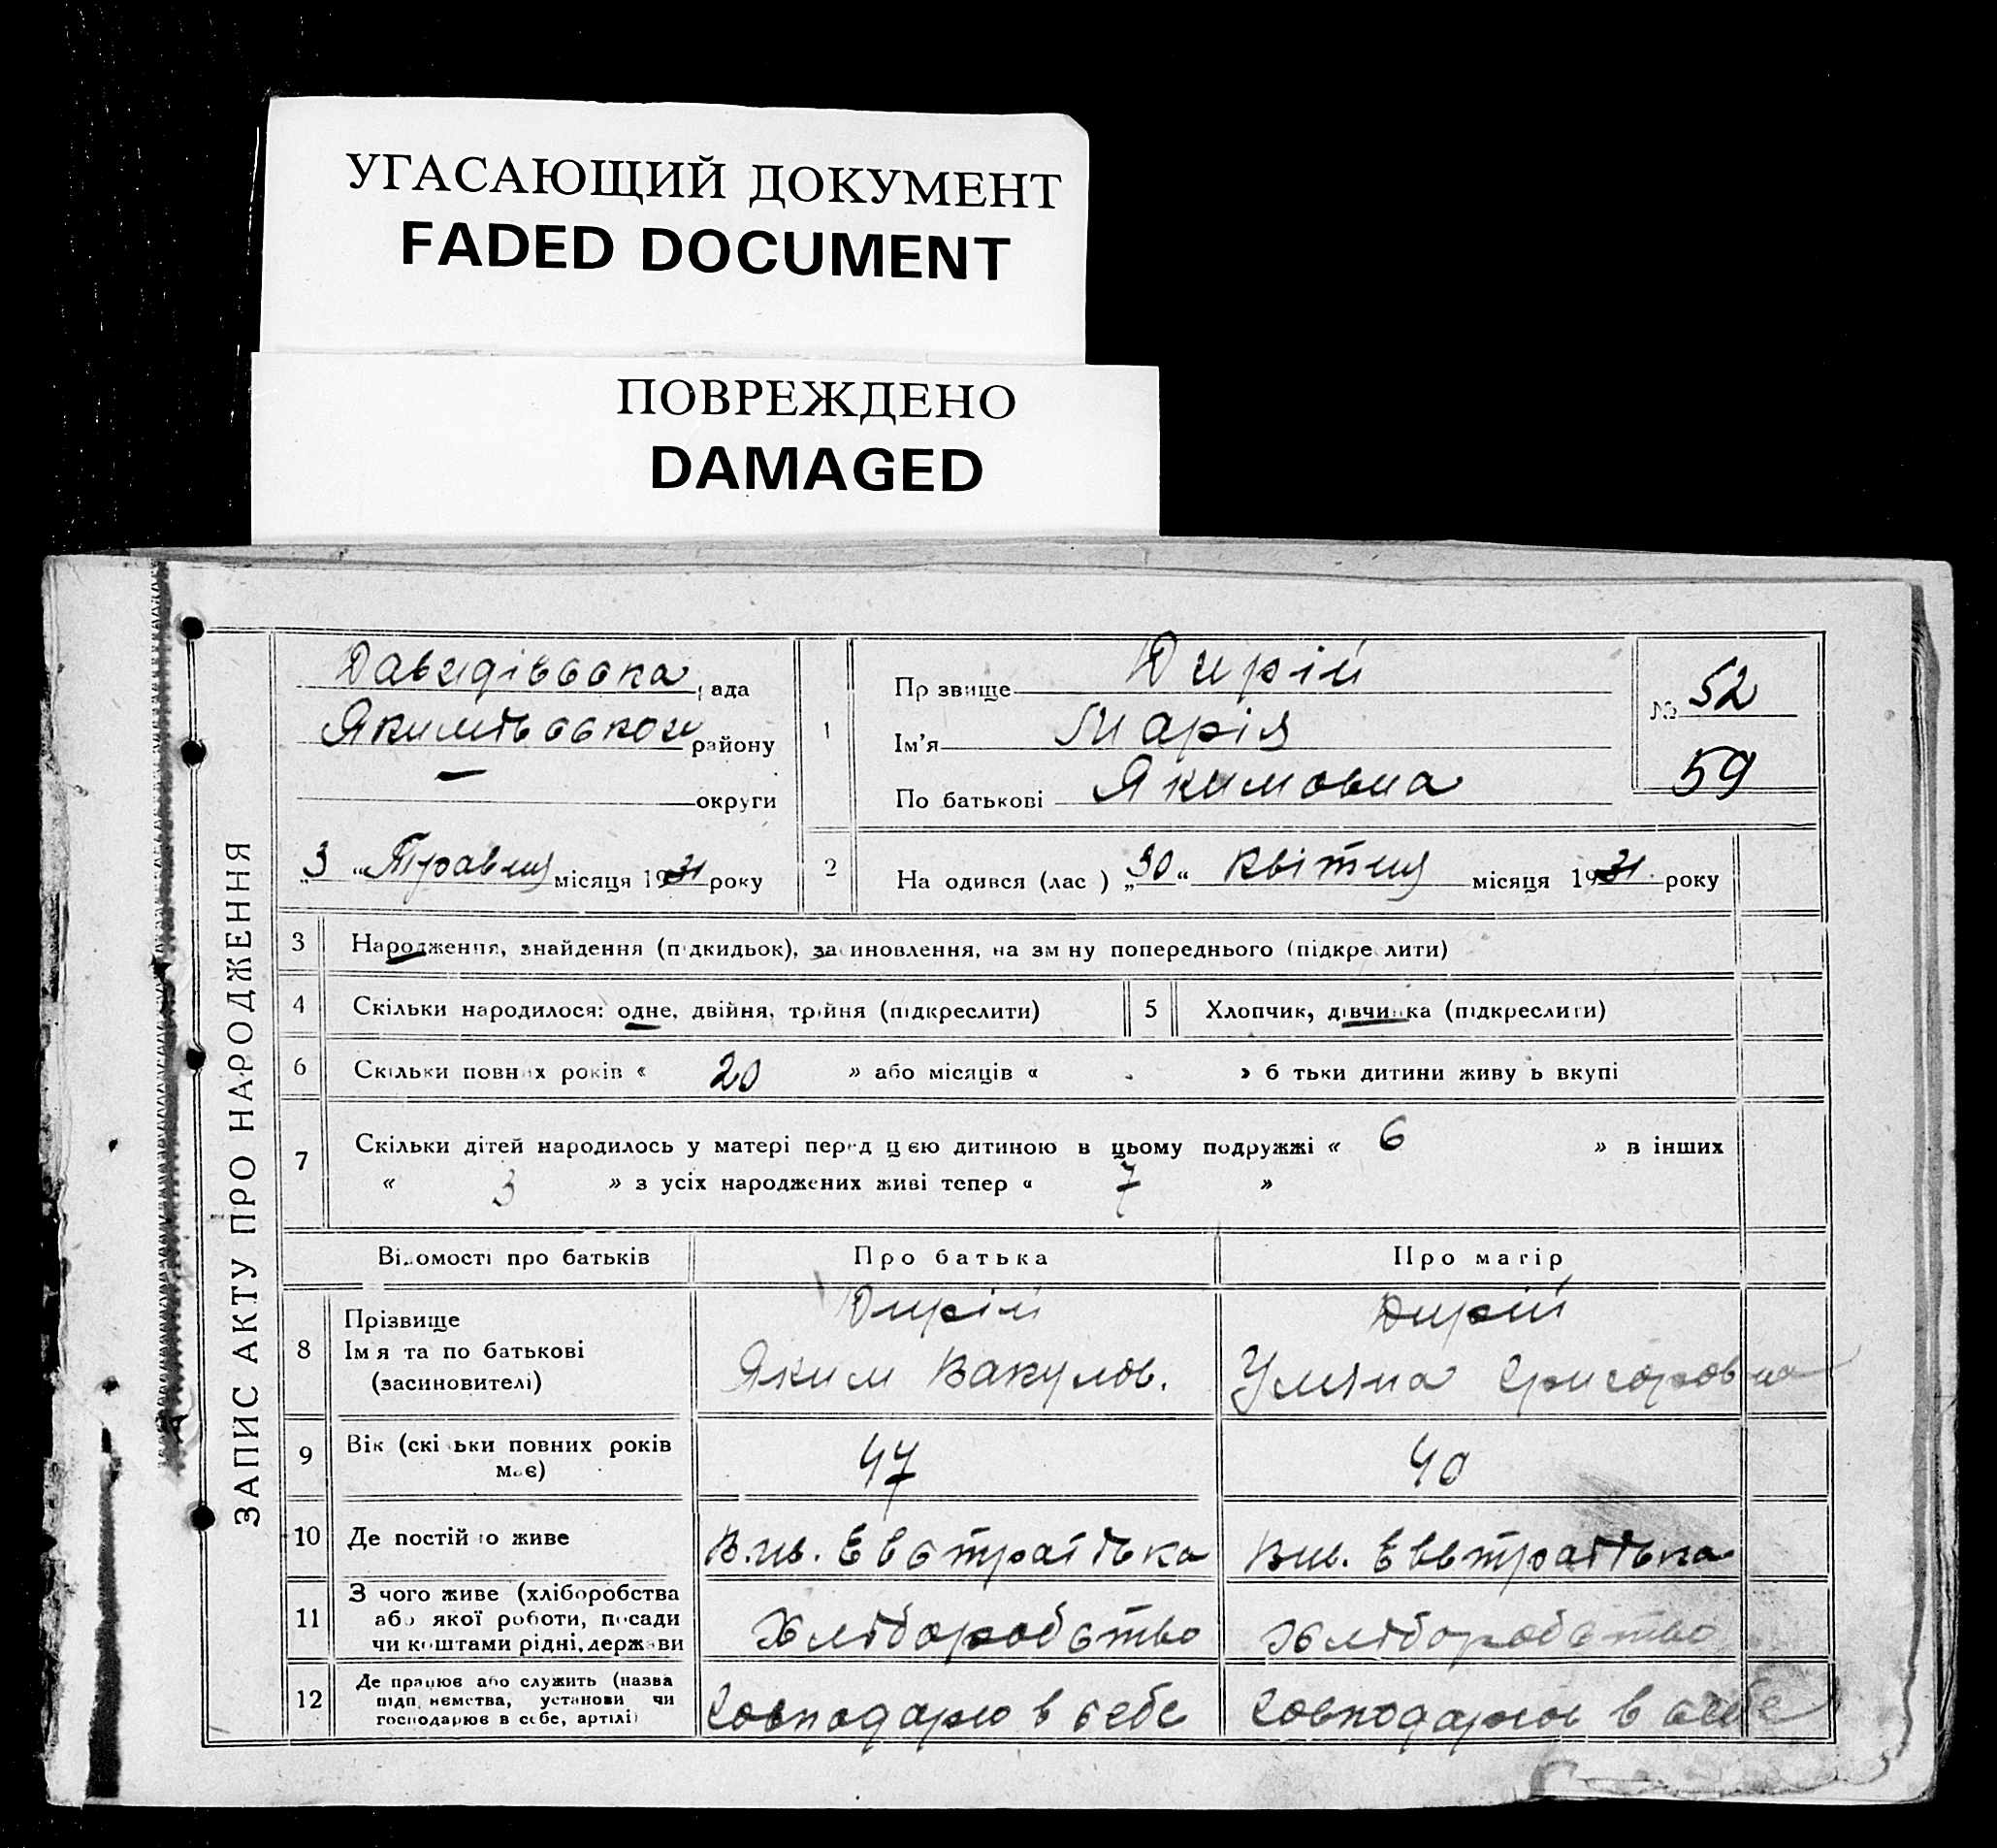 УГАСАЮЩИЙ ДОКУМЕНТ
FADED DOCUMENT
ПОВРЕЖДЕНО
DAMAGED
ЗАПИС АКТУ ПРО НАРОДЖЕННЯ
Давидівська рада
Якимівської району
— округи
„3“ Травня місяця 1931 року
1
Прізвище Дирій
Ім'я Марія
По батькові Якимовна
№ 52
59
2 На одився (лас ) „30“ Квітня місяця 1931 року
3 Народження, знайдення (підкидьок), засиновлення, на зм ну попереднього (підкре лити)
4 Скільки народилося: одне, двійня, трійня (підкреслити)
5 Хлопчик, дівчинка (підкреслити)
6 Скільки повних років « 20 » або місяців « - » б тьки дитини живу ь вкупі
7 Скільки дітей народилось у матері перед цією дитиною в цьому подружжі « 6 » в інших
« 3 » з усіх народжених живі тепер « 7 »
Відомості про батьків Про батька Про матір
8 Прізвище Дирій Дирій
Імя та по батькові Яким Вакулов. Уляна Григоровна
(засиновителі)
9 Вік (скі ьки повних років має) 47 40
10 Де постійно живе
11 З чого живе (хліборобства
або якої роботи, посади Хліборобство Хліборобство
чи коштами рідні, держави
12 Де працює або служить (назва
підп иємства, установи чи господарю в себе господарює в себе
господарює в себе, артілі)